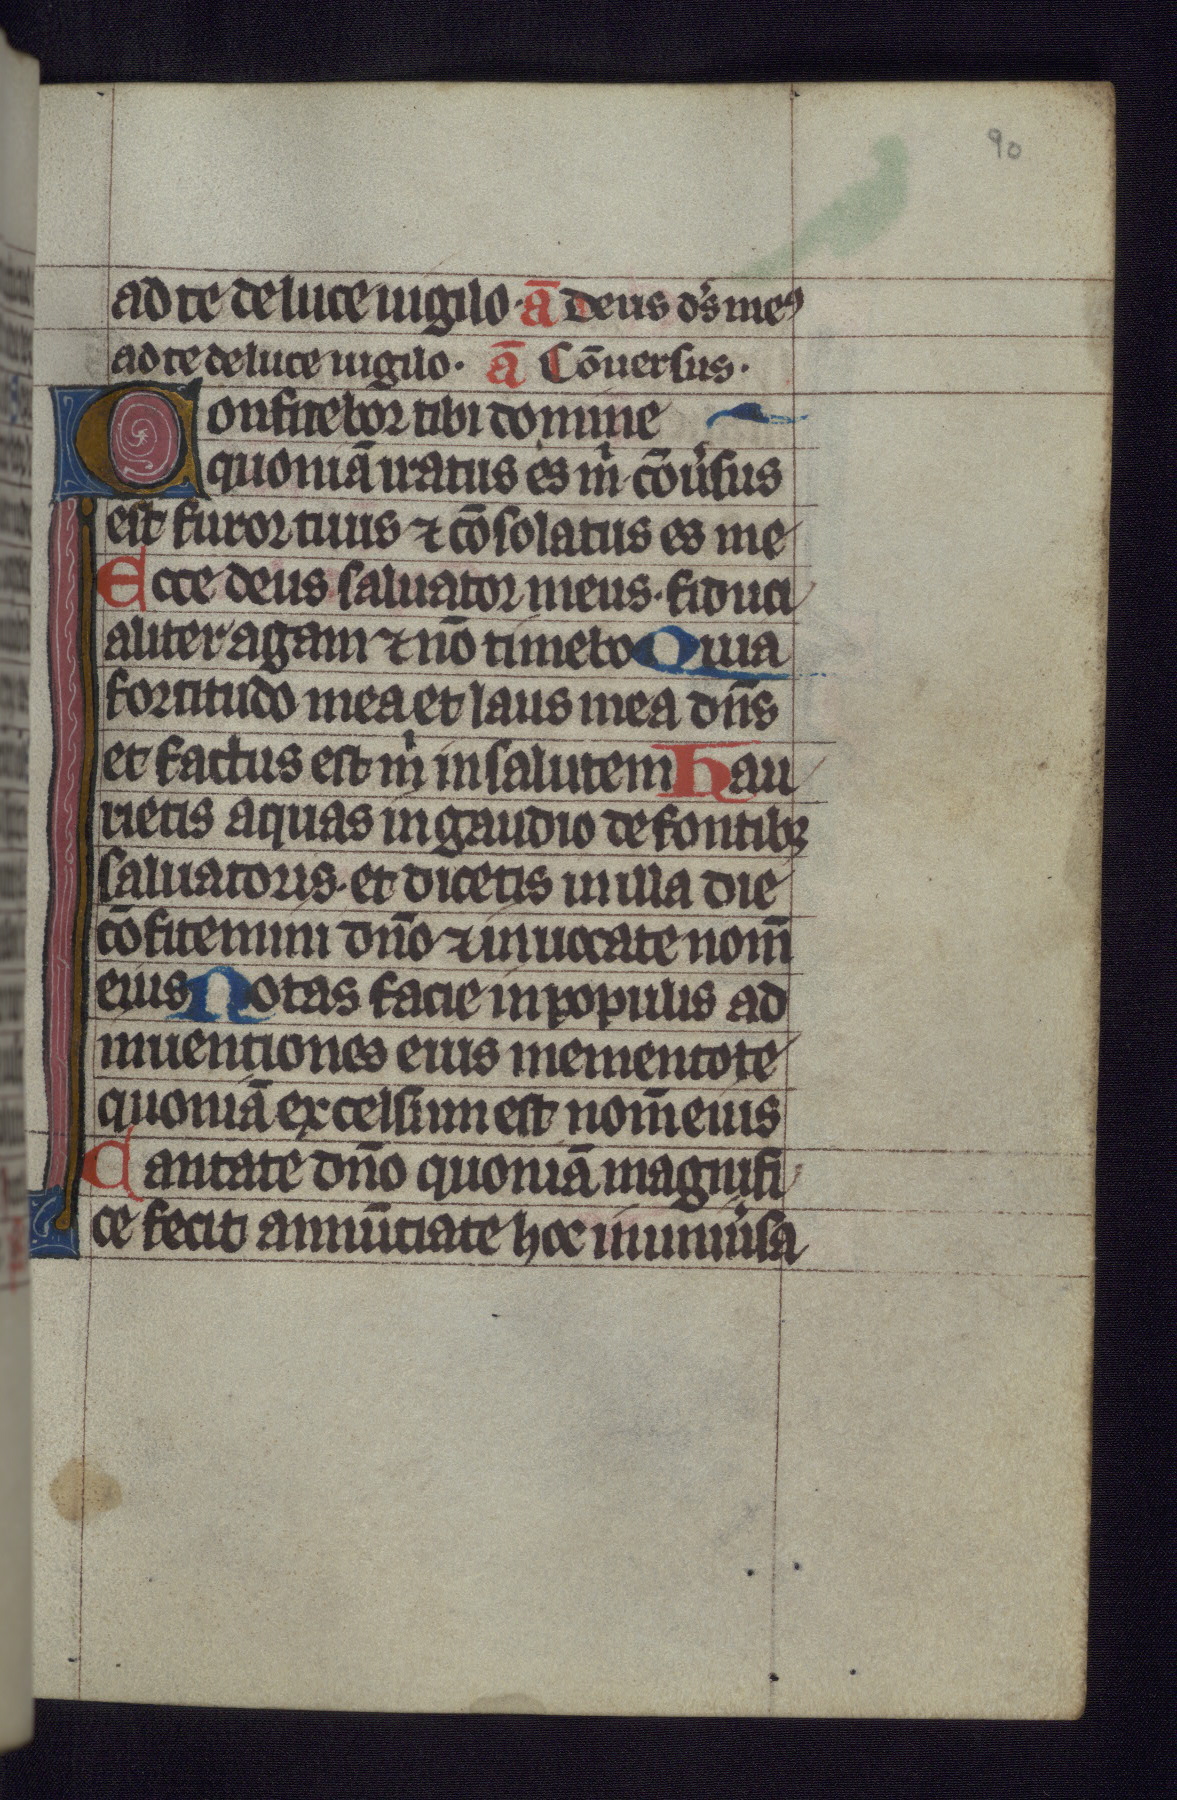 90
ad te de luce uigilo· ā Deus ds̄ me9
ad te de luce uigilo· ā Cōuersus·
Confitebor tibi domine
quoniā iratus es m̄ cōu̓sus
est furor tuus ⁊ cōsolatus es me
Ecce deus saluator meus· fiduci
aliter agam ⁊ nō timebo Quia
fortitudo mea et laus mea dn̄s
et factus est m̄ in salutem Hau
rietis aquas in gaudio de fontibꝫ
saluatoris· et dicetis in illa die
cōfitemini dn̄o ⁊ inuocate nom̄
eius Notas facie in populis ad
inuentiones eius mementote
quoniā excelsum est nom̄ eius
Cantate dn̄o quoniā magnifi
ce fecit annūtiate hoc in uniu̓sa